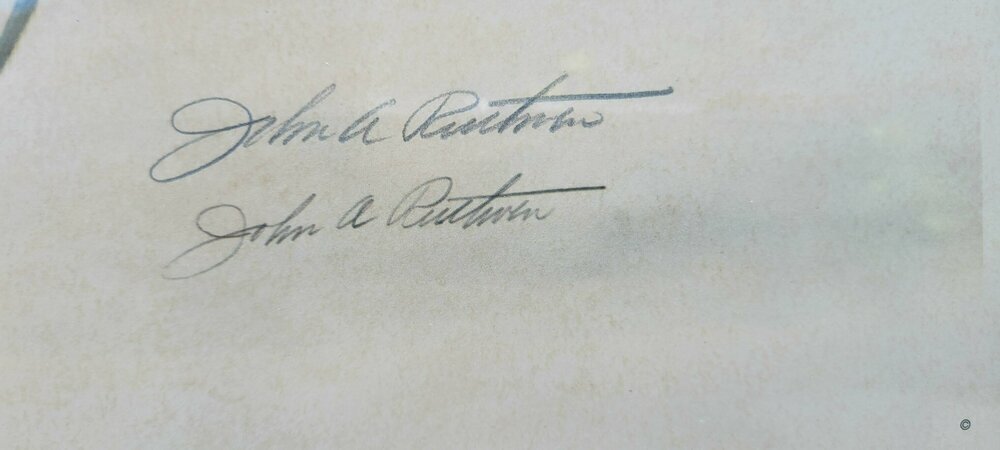 John A Ruthven
John A Ruthven
©